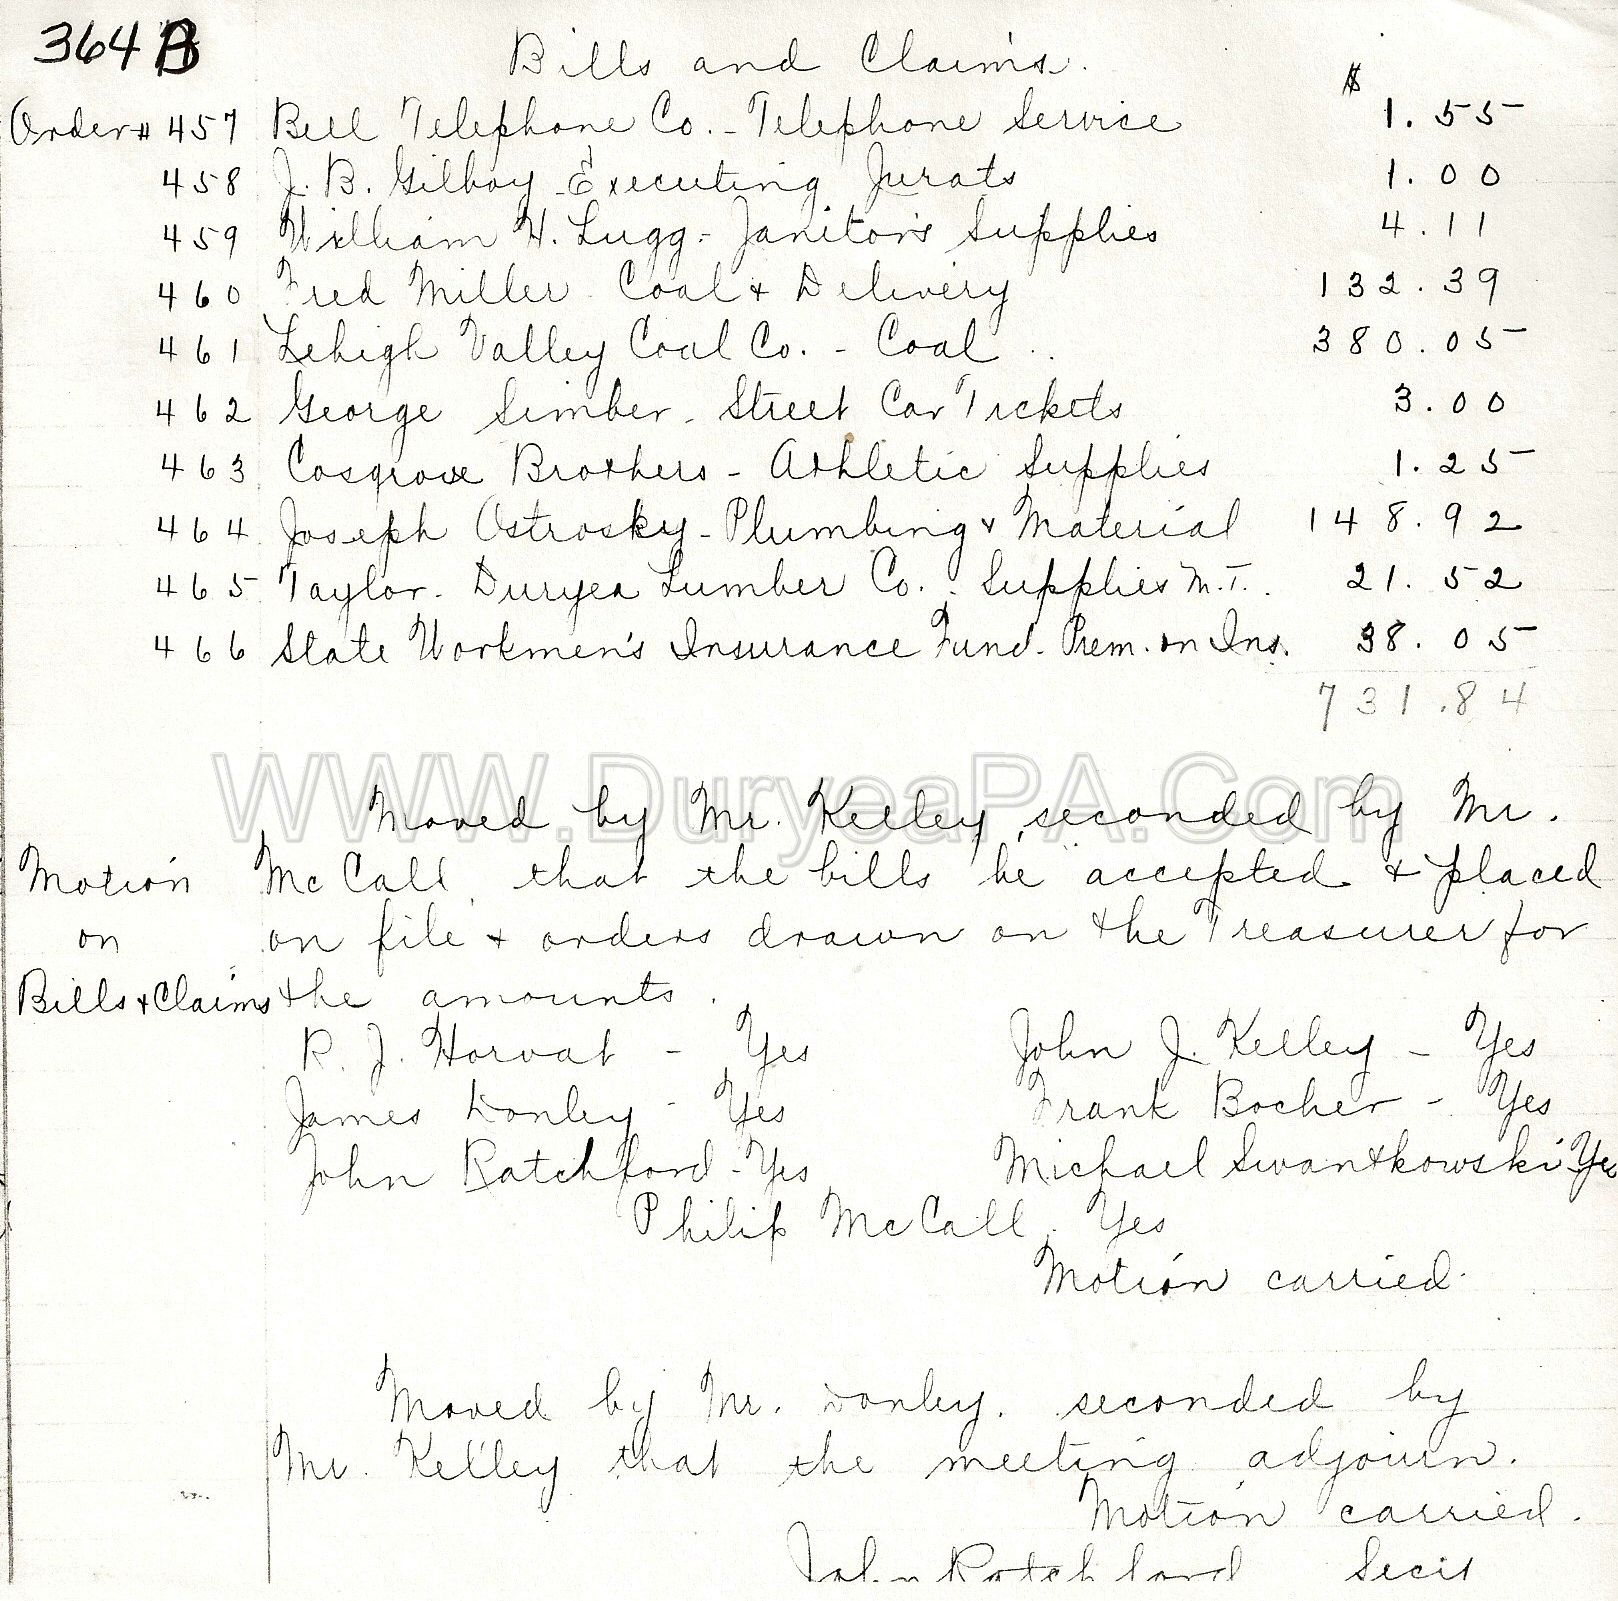 364 B
Bills and Claims.
$
Order # 457 Bell Telephone Co. - Telephone Service 1.55
458 J. B. Gilboy - Executing Jurats 1.00
459 William H. Lugg - Janitor's Supplies 4.11
460 Fred Miller. Coal & Delivery 132.39
461 Lehigh Valley Coal Co. - Coal 380.05
462 George Simber - Street Car Tickets 3.00
463 Cosgrove Brothers - Athletic Supplies 1.25
464 Joseph Ostrosky - Plumbing & Material 148.92
465 Taylor - Duryea Lumber Co. - Supplies M.T. 21.52
466 State Workmen's Insurance Fund - Prem. on Ins. 38.05
731.84
WWW.DuryeaPA.Com
Moved by Mr. Kelley, seconded by Mr.
Motion McCall that the bills be accepted & placed
on on file & orders drawn on the Treasurer for
Bills & Claims the amounts.
R. J. Horvat - Yes John J. Kelley - Yes
James Donley - Yes Frank Bocher - Yes
John Ratchford - Yes Michael Swantkowski Yes
Philip McCall. Yes
Motion carried.
Moved by Mr. Donley, seconded by
Mr. Kelley that the meeting adjourn.
Motion carried.
John Ratchford Secit